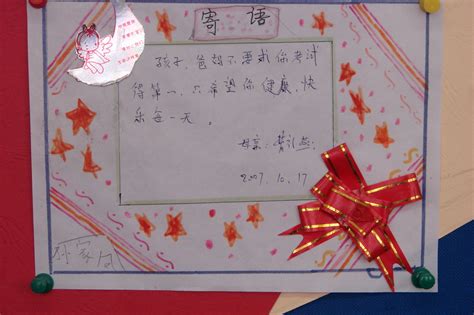 寄语
孩子，爸妈不要求你考试
得第一，只希望你健康，快
乐每一天。
母亲：
2007.10.17